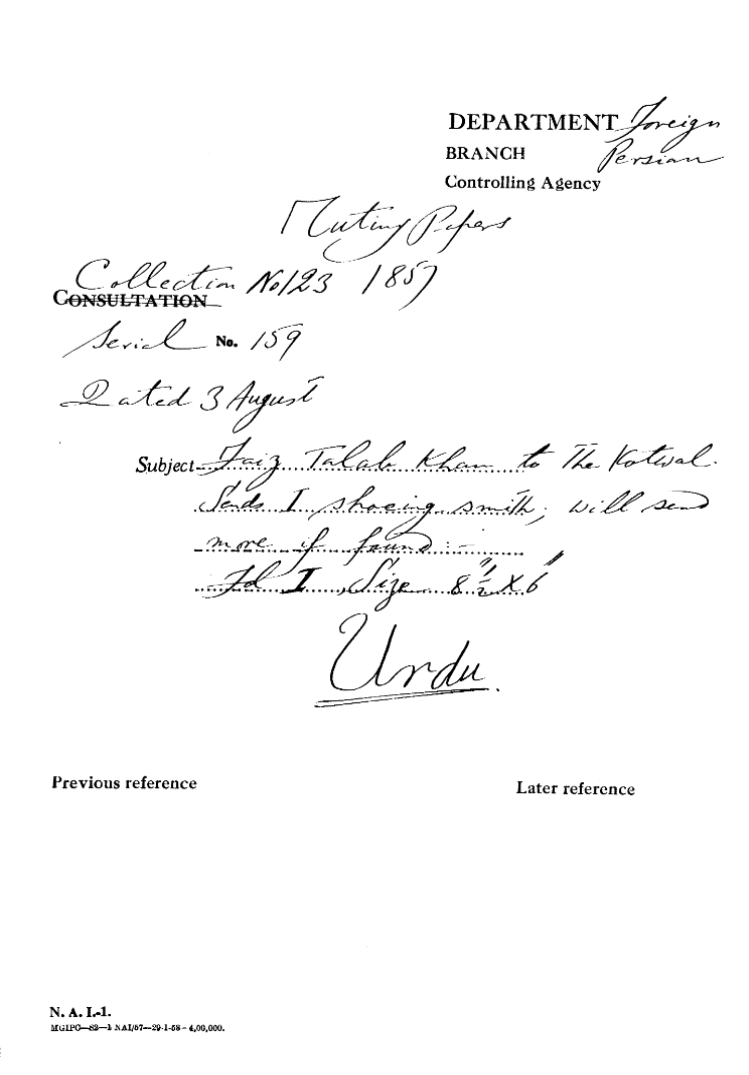 DEPARTMENT Foreign
BRANCH Persian
Controlling Agency
Mutiny Papers
Collection No 123 1857
CONSULTATION
Serial No. 159
Dated 3 August
Subject Faiz Talab Khan to The Kotwal.
Sends I shoeing smith; will send
more if found :-
Fd I, Size 8 1/2" X 6"
Urdu.
Previous reference
Later reference
N. A. I.-1.
MGIPC—S2—1 NAI/57—29-1-58 - 4,00,000.